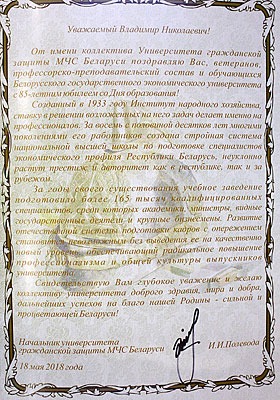 Уважаемый Владимир Николаевич!
От имени коллектива Университета гражданской
защиты МЧС Беларуси поздравляю Вас, ветеранов,
профессорско-преподавательский состав и обучающихся
Белорусского государственного экономического университета
с 85-летним юбилеем со Дня образования!
Созданный в 1933 году Институт народного хозяйства,
ставку в решении возложенных на него задач делает именно на
профессионалов. За восемь с половиной десятков лет многими
поколениями его работников создана стройная система
национальной высшей школы по подготовке специалистов
экономического профиля Республики Беларусь, неуклонно
растут престиж и авторитет в республике, так и за
рубежом.
За годы своего существования учебное заведение
подготовило более 165 тысяч квалифицированных
специалистов, среди которых академики, министры, видные
государственные деятели и крупные бизнесмены. Развитие
отечественной системы подготовки кадров с опережением
становится без введения ее на качественно
новый обеспечивающий радикальное повышение
профессионализма и общей культуры выпускников
университета.
Свидетельствую Вам глубокое уважение и желаю
коллективу университета доброго здравия, мира и добра,
дальнейших успехов на благо нашей Родины - сильной и
процветающей Беларуси!
Начальник университета
гражданской защиты МЧС Беларуси И.И.Полевода
18 мая 2018 года